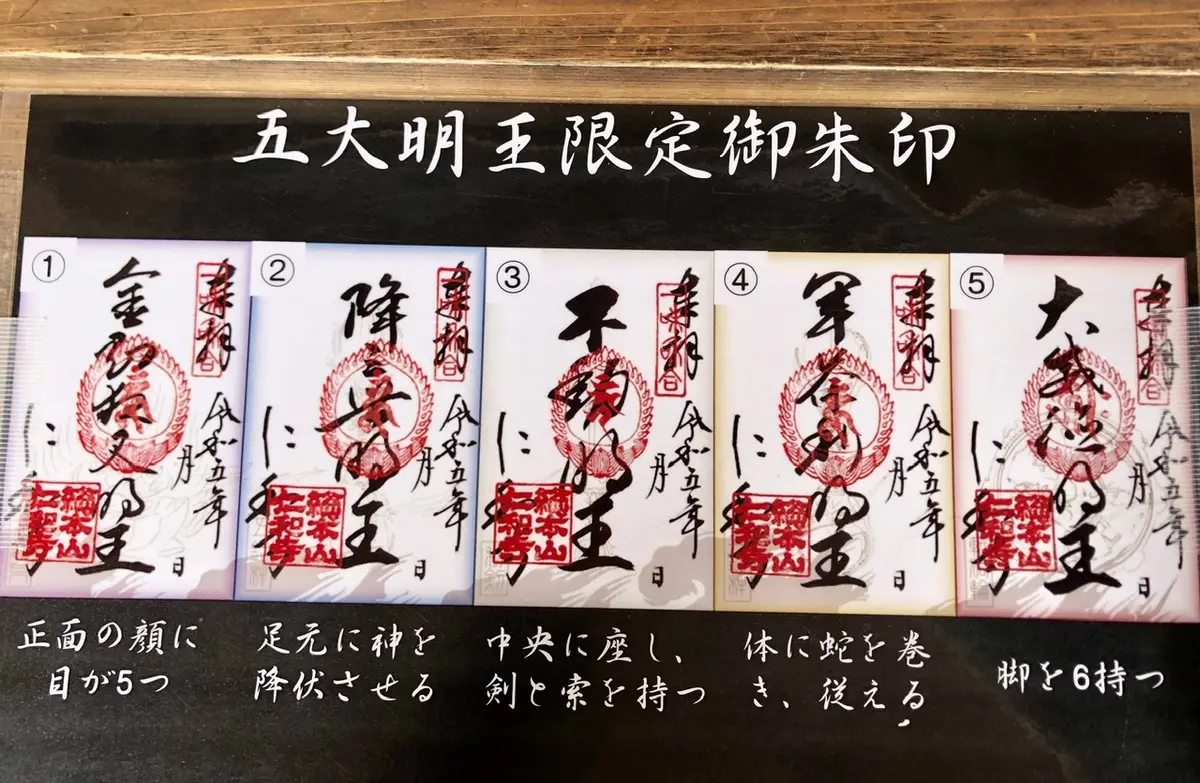 五大明王限定御朱印
①
奉拝
金剛夜叉明王
令和五年
月
日
仁和寺
總本山
仁和寺
②
奉拝
降三世明王
令和五年
月
日
仁和寺
總本山
仁和寺
③
奉拝
不動明王
令和五年
月
日
仁和寺
總本山
仁和寺
④
奉拝
軍荼利明王
令和五年
月
日
仁和寺
總本山
仁和寺
⑤
奉拝
大威徳明王
令和五年
月
日
仁和寺
總本山
仁和寺
正面の顔に
目が5つ
足元に神を
降伏させる
中央に座し、
剣と索を持つ
体に蛇を巻
き、従える
脚を6持つ